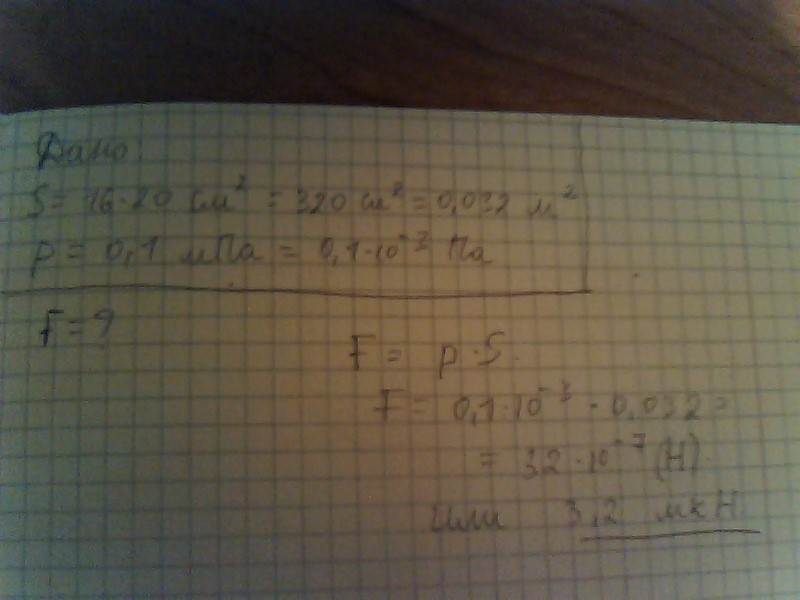 Дано:
S = 16·20 см² = 320 см² = 0,032 м²
p = 0,1 мПа = 0,1·10⁻³ Па
F = ?
F = p·S.
F = 0,1·10⁻³ · 0,032 =
= 32·10⁻⁷ (Н).
или 3,2 мкН.